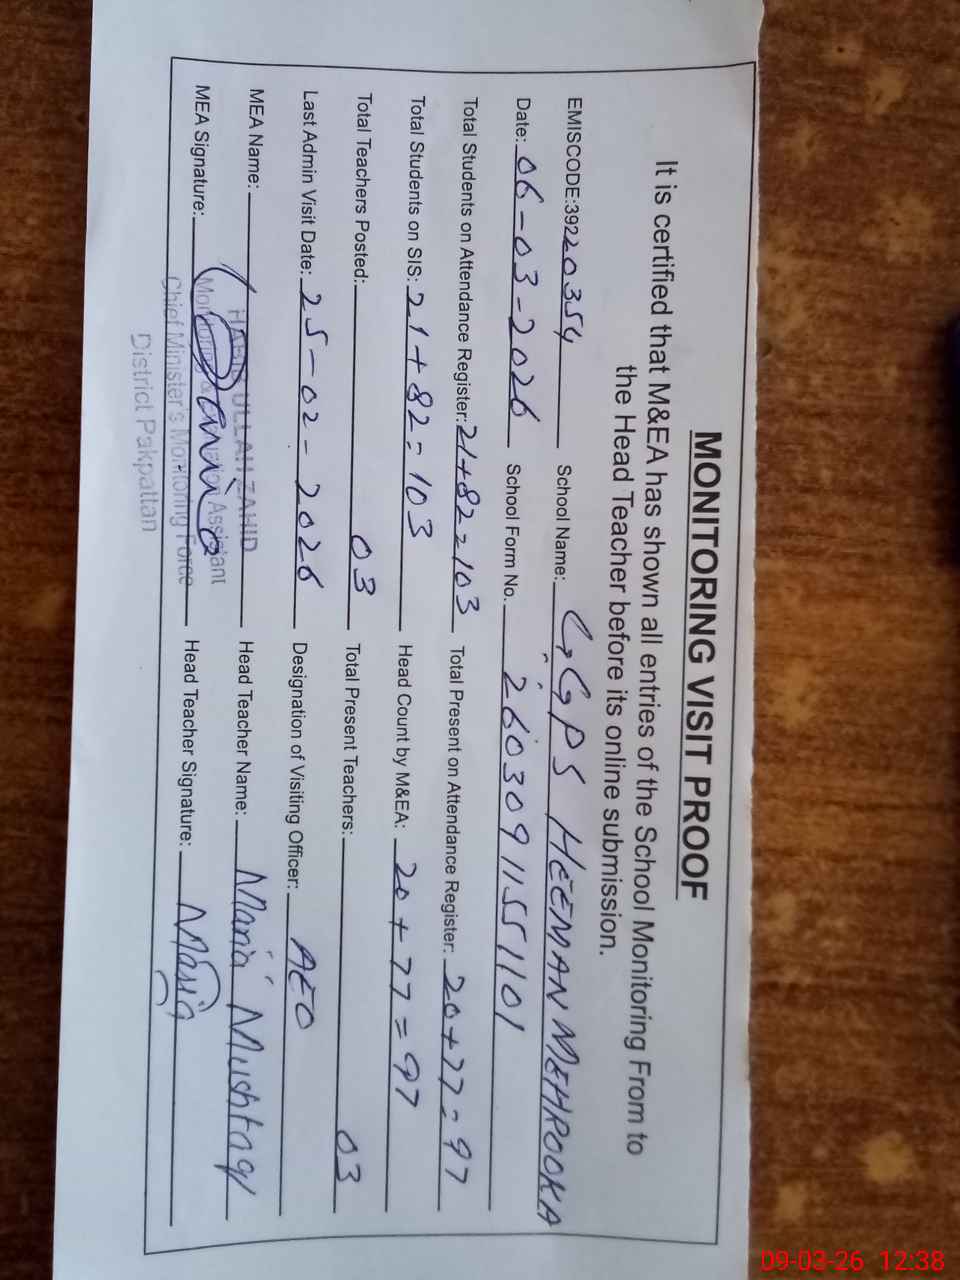 MONITORING VISIT PROOF
It is certified that M&EA has shown all entries of the School Monitoring From to
the Head Teacher before its online submission.
EMISCODE:39220354 School Name: GGPS HEEMAN MEHROOKA
Date: 06-03-2026 School Form No. 26030911551101
Total Students on Attendance Register: 21+82=103 Total Present on Attendance Register: 20+77=97
Total Students on SIS: 21+82=103 Head Count by M&EA: 20+77=97
Total Teachers Posted: 03 Total Present Teachers: 03
Last Admin Visit Date: 25-02-2026 Designation of Visiting Officer: AEO
MEA Name: HABIB ULLAH ZAHID Head Teacher Name: Maria Mushtaq
MEA Signature: Head Teacher Signature: Maria
Monitoring & Evaluation Assistant
Chief Minister's Monitoring Force
District Pakpattan
09-03-26 12:38